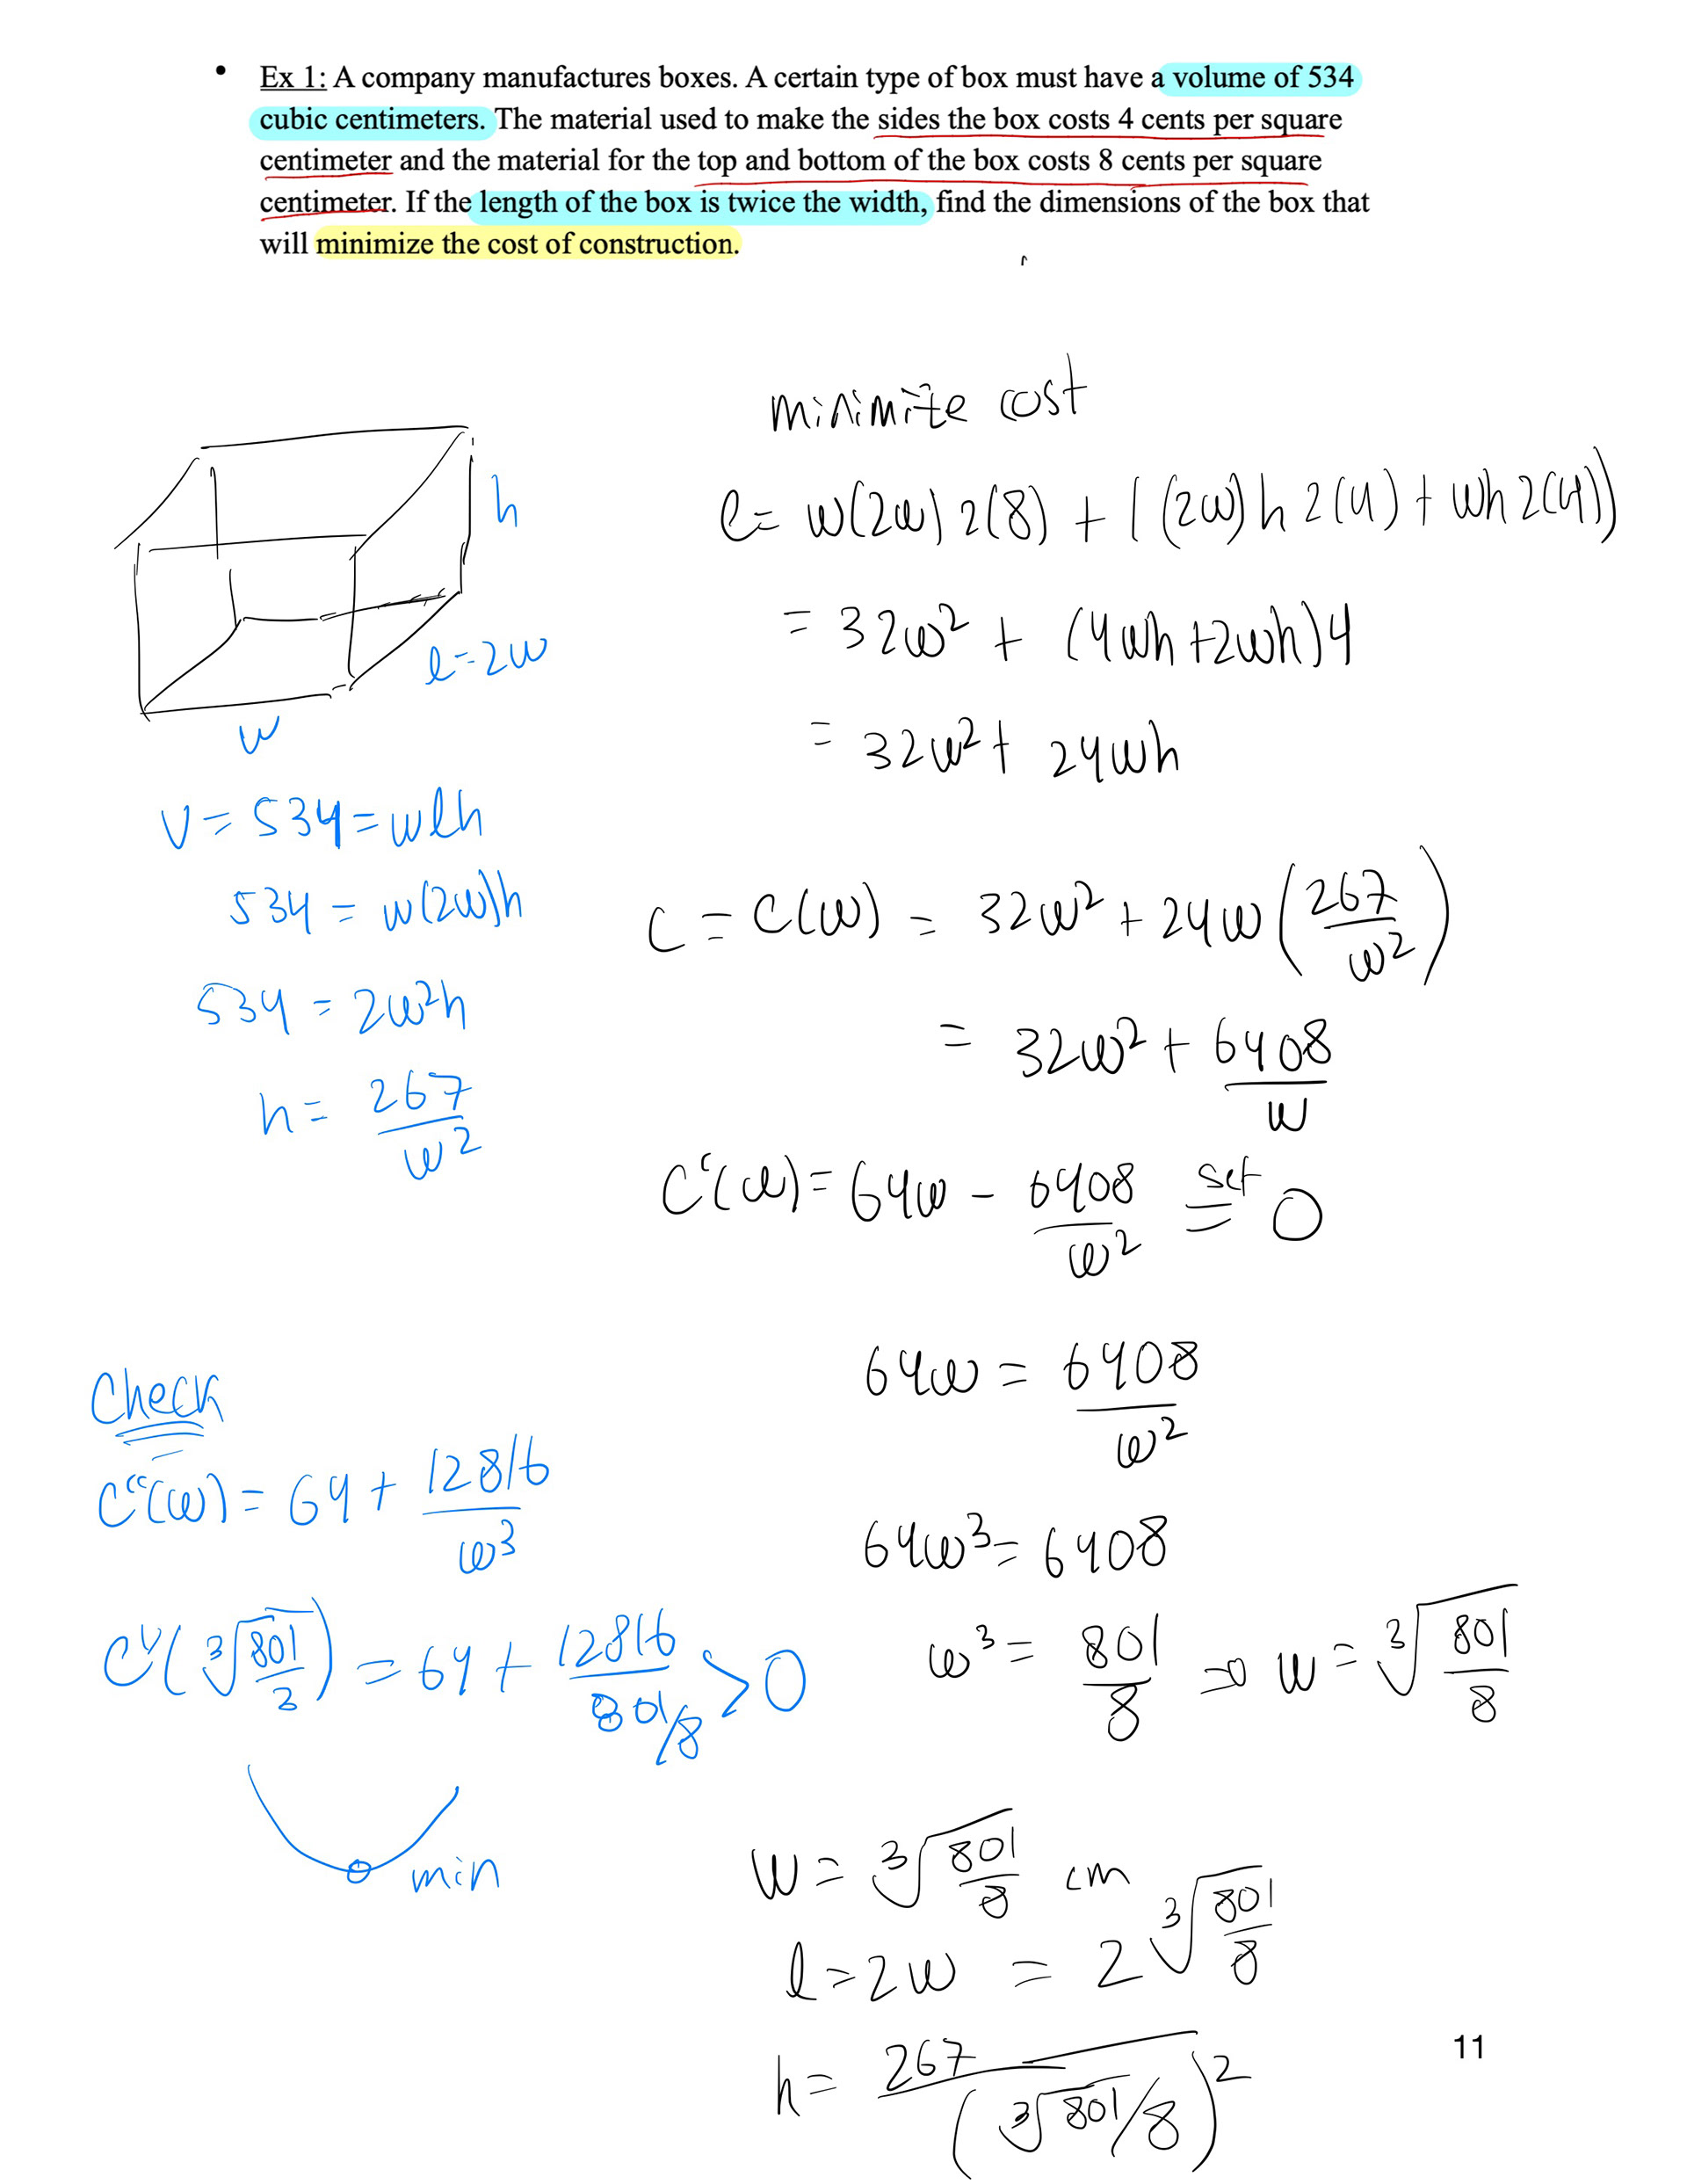 • Ex 1: A company manufactures boxes. A certain type of box must have a volume of 534
cubic centimeters. The material used to make the sides the box costs 4 cents per square
centimeter and the material for the top and bottom of the box costs 8 cents per square
centimeter. If the length of the box is twice the width, find the dimensions of the box that
will minimize the cost of construction.
minimize cost
C = w(2w)2(8) + ((2w)h2(4) + wh2(4))
= 32w² + (4wh+2wh)4
= 32w² + 24wh
h
l=2w
w
V = 534 = wlh
534 = w(2w)h
534 = 2w²h
h = 267/w²
C = C(w) = 32w² + 24w(267/w²)
= 32w² + 6408/w
C'(w) = 64w - 6408/w² set = 0
64w = 6408/w²
64w³ = 6408
w³ = 801/8 → w = ∛(801/8)
Check
C''(w) = 64 + 12816/w³
C''(∛(801/3)) = 64 + 12816/(801/8) > 0
min
w = ∛(801/8) cm
l = 2w = 2∛(801/8)
h = 267/(∛801/8)²
11